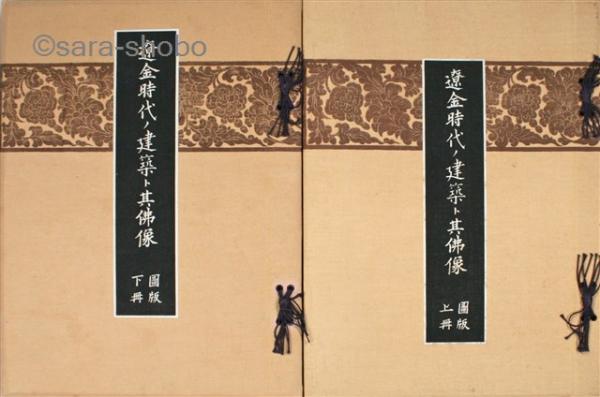 ©sara-shobo
遼金時代ノ建築ト其佛像
圖版
上冊
遼金時代ノ建築ト其佛像
圖版
下冊